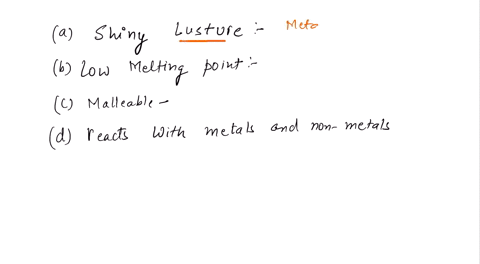 (a) Shiny Lusture :- Meta
(b) Low Melting point :-
(c) Malleable -
(d) reacts with metals and non-metals